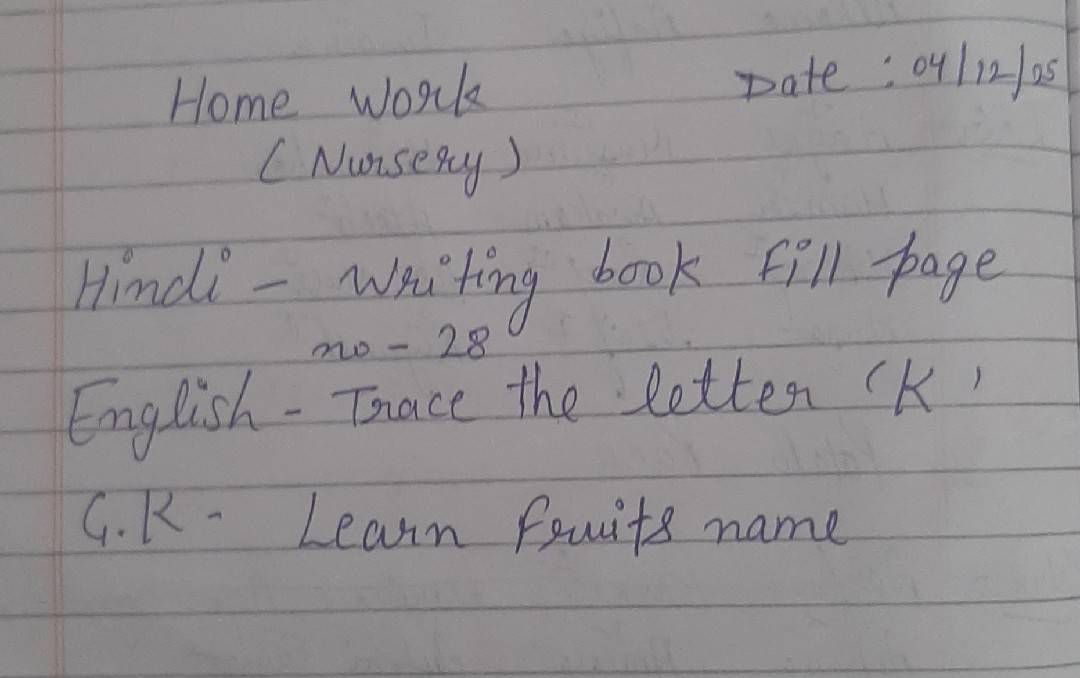 Home Work Date : 04/12/25
(Nursery)
Hindi - Writing book fill page
no - 28
English - Trace the letter 'K'
G.K - Learn fruits name